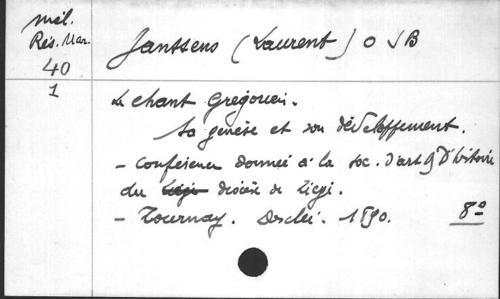 mél.
Rés. Mar.
40
1
Janssens (Laurent) O S B
Le chant Grégorien.
Sa genèse et son développement.
- Conférence donnée à la soc. d'art & D'histoire
du diocèse de Liège.
- Tournay. Desclée. 1890. 8º